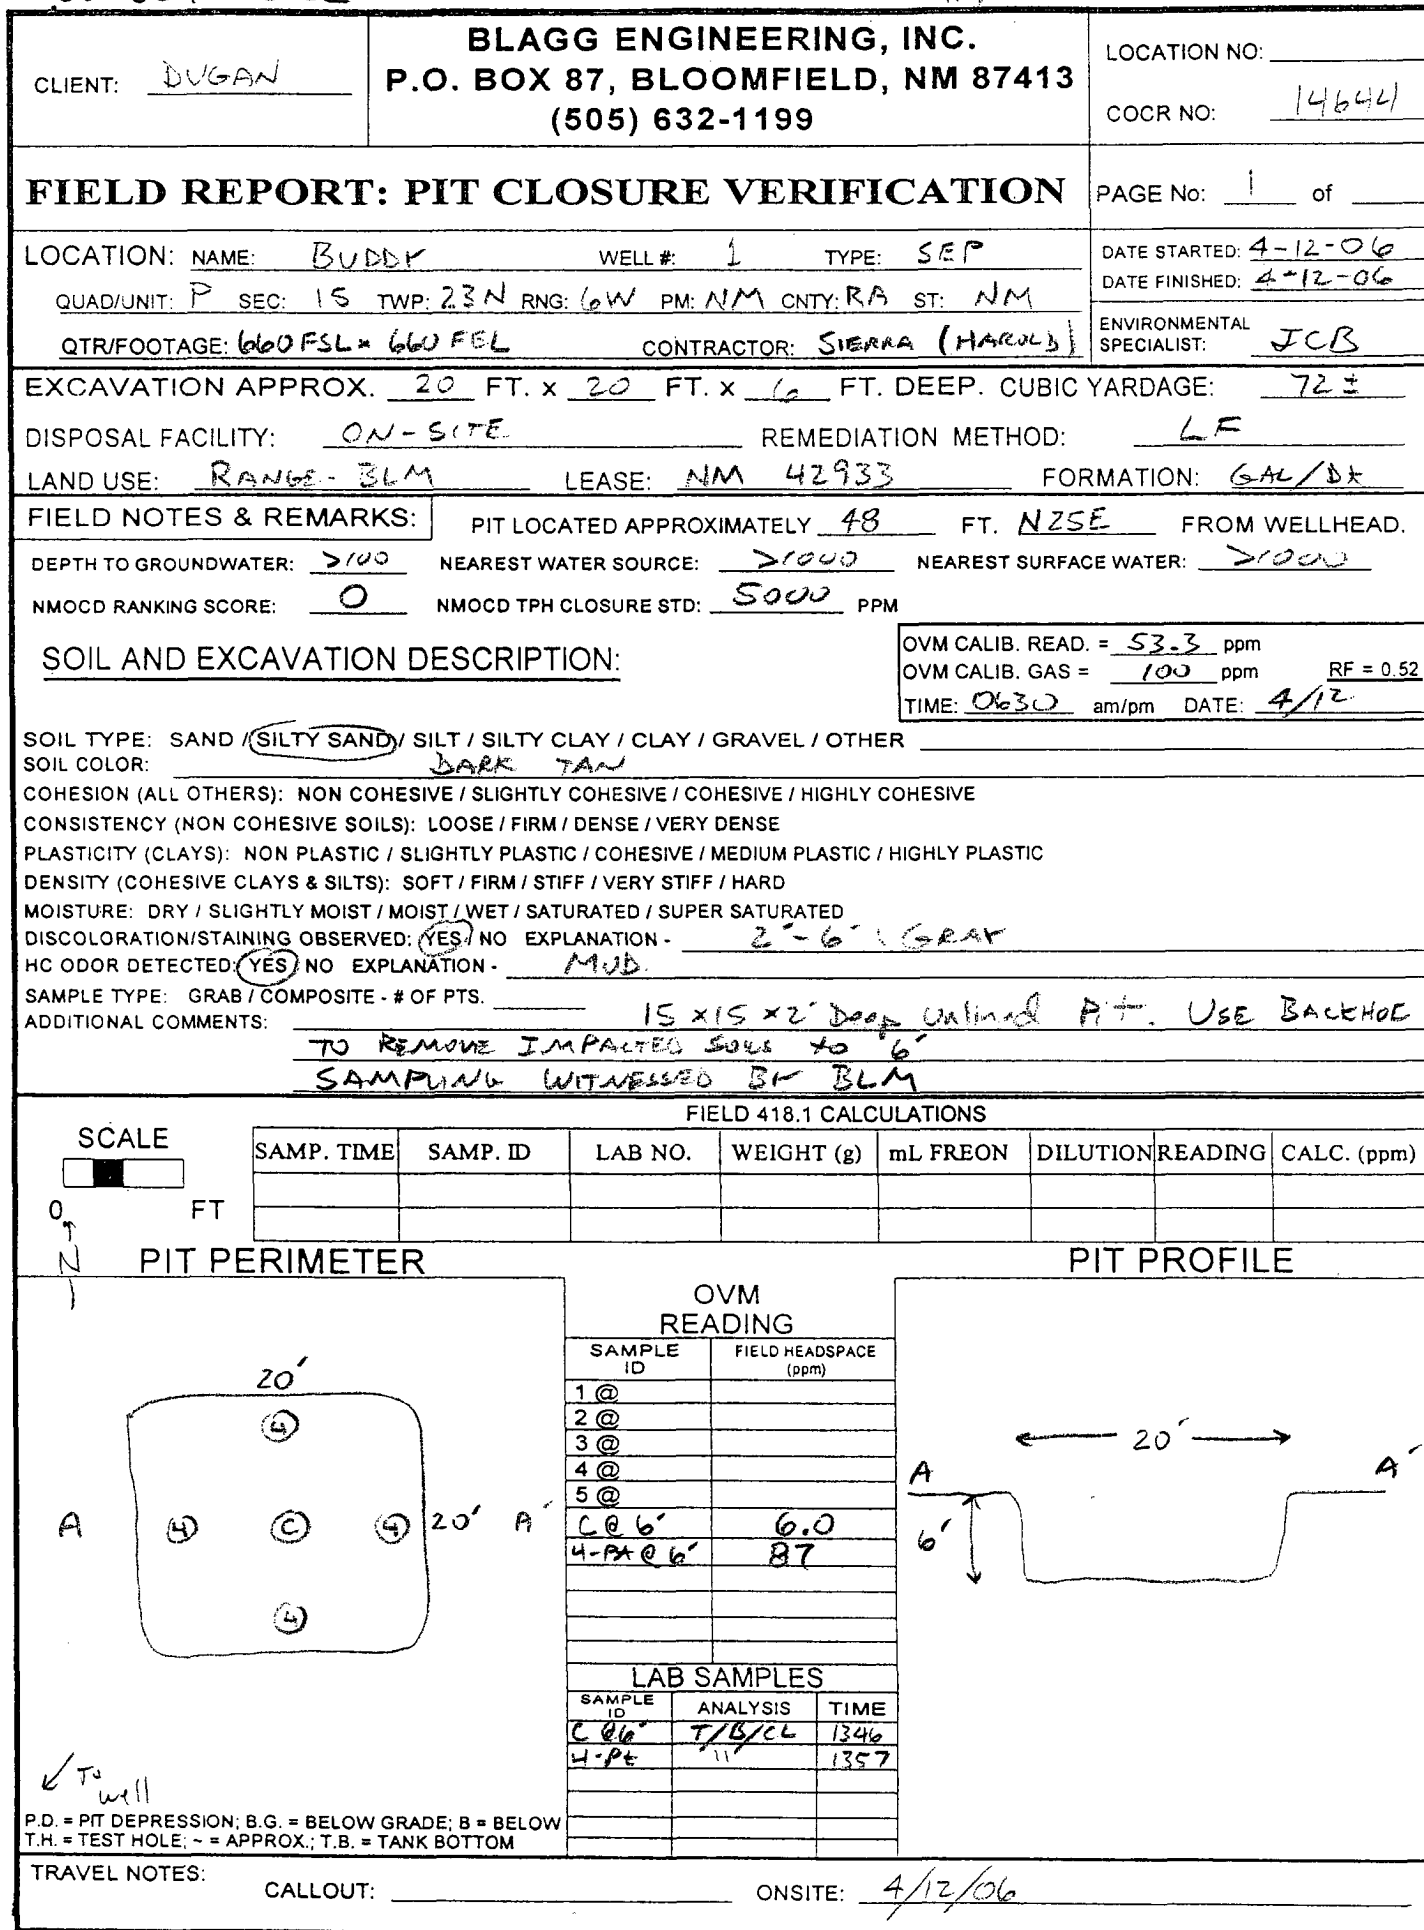 BLAGG ENGINEERING, INC.
CLIENT: DUGAN
P.O. BOX 87, BLOOMFIELD, NM 87413
(505) 632-1199
LOCATION NO:
COCR NO: 14644
FIELD REPORT: PIT CLOSURE VERIFICATION
PAGE No: 1 of
LOCATION: NAME: BUDDY WELL #: 1 TYPE: SEP
DATE STARTED: 4-12-06
DATE FINISHED: 4-12-06
QUAD/UNIT: P SEC: 15 TWP: 23N RNG: 6W PM: NM CNTY: RA ST: NM
QTR/FOOTAGE: 660 FSL x 660 FEL CONTRACTOR: SIERRA (HAROLD)
ENVIRONMENTAL SPECIALIST: JCB
EXCAVATION APPROX. 20 FT. x 20 FT. x 6 FT. DEEP. CUBIC YARDAGE: 72 ±
DISPOSAL FACILITY: ON-SITE REMEDIATION METHOD: LF
LAND USE: RANGE - BLM LEASE: NM 42933 FORMATION: GAL/DK
FIELD NOTES & REMARKS: PIT LOCATED APPROXIMATELY 48 FT. N25E FROM WELLHEAD.
DEPTH TO GROUNDWATER: >100 NEAREST WATER SOURCE: >1000 NEAREST SURFACE WATER: >1000
NMOCD RANKING SCORE: 0 NMOCD TPH CLOSURE STD: 5000 PPM
SOIL AND EXCAVATION DESCRIPTION:
OVM CALIB. READ. = 53.3 ppm
OVM CALIB. GAS = 100 ppm RF = 0.52
TIME: 0630 am/pm DATE: 4/12
SOIL TYPE: SAND / SILTY SAND / SILT / SILTY CLAY / CLAY / GRAVEL / OTHER
SOIL COLOR: DARK TAN
COHESION (ALL OTHERS): NON COHESIVE / SLIGHTLY COHESIVE / COHESIVE / HIGHLY COHESIVE
CONSISTENCY (NON COHESIVE SOILS): LOOSE / FIRM / DENSE / VERY DENSE
PLASTICITY (CLAYS): NON PLASTIC / SLIGHTLY PLASTIC / COHESIVE / MEDIUM PLASTIC / HIGHLY PLASTIC
DENSITY (COHESIVE CLAYS & SILTS): SOFT / FIRM / STIFF / VERY STIFF / HARD
MOISTURE: DRY / SLIGHTLY MOIST / MOIST / WET / SATURATED / SUPER SATURATED
DISCOLORATION/STAINING OBSERVED: YES / NO EXPLANATION - 2'-6' GRAY
HC ODOR DETECTED: YES / NO EXPLANATION - MUD.
SAMPLE TYPE: GRAB / COMPOSITE - # OF PTS.
ADDITIONAL COMMENTS: 15 x 15 x 2' Deep Unlined Pit. USE BACKHOE
TO REMOVE IMPACTED SOILS to 6'
SAMPLING WITNESSED BY BLM
FIELD 418.1 CALCULATIONS
SCALE
0 FT
SAMP. TIME SAMP. ID LAB NO. WEIGHT (g) mL FREON DILUTION READING CALC. (ppm)
N
PIT PERIMETER
PIT PROFILE
20'
4
A 4 C 4 20' A'
4
To well
OVM READING
SAMPLE ID FIELD HEADSPACE (ppm)
1 @
2 @
3 @
4 @
5 @
C @ 6' 6.0
4-Pt @ 6' 87
LAB SAMPLES
SAMPLE ID ANALYSIS TIME
C @ 6' T/B/CL 1346
4-Pt " 1357
20'
A A'
6'
P.D. = PIT DEPRESSION; B.G. = BELOW GRADE; B = BELOW
T.H. = TEST HOLE; ~ = APPROX.; T.B. = TANK BOTTOM
TRAVEL NOTES: CALLOUT: ONSITE: 4/12/06